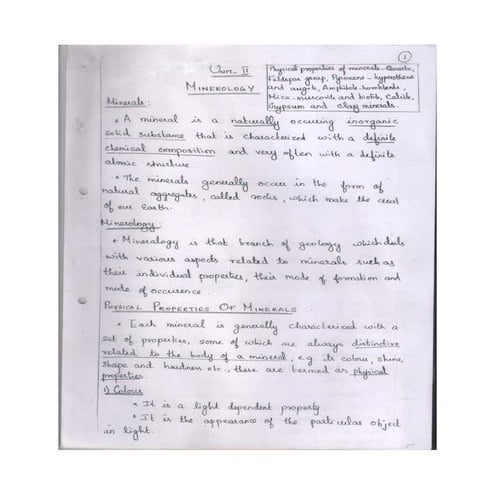 1
Unit- II
MINEROLOGY
Physical properties of minerals- Quartz,
Felspar group, Pyroxene - hypersthene
and augite, Amphibole- hornblende,
Mica- muscovite and biotite, Calcite,
Gypsum and Clay minerals.
Minerals:
• A mineral is a naturally occuring inorganic
solid substance that is characterized with a definite
chemical composition and very often with a definite
atomic structure.
• The minerals generally occur in the form of
natural aggregates, called rocks, which make the crust
of our Earth.
Minerology:
• Mineralogy is that branch of geology which deals
with various aspects related to minerals such as
their individual properties, their mode of formation and
mode of occurence.
PHYSICAL PROPERTIES OF MINERALS:
• Each mineral is generally characterized with a
set of properties, some of which are always distinctive
related to the body of a mineral, e.g. its colour, shine,
shape and hardness etc., these are termed as physical
properties.
1) Colour
• It is a light dependent property.
• It is the appearance of the particular object
in light.